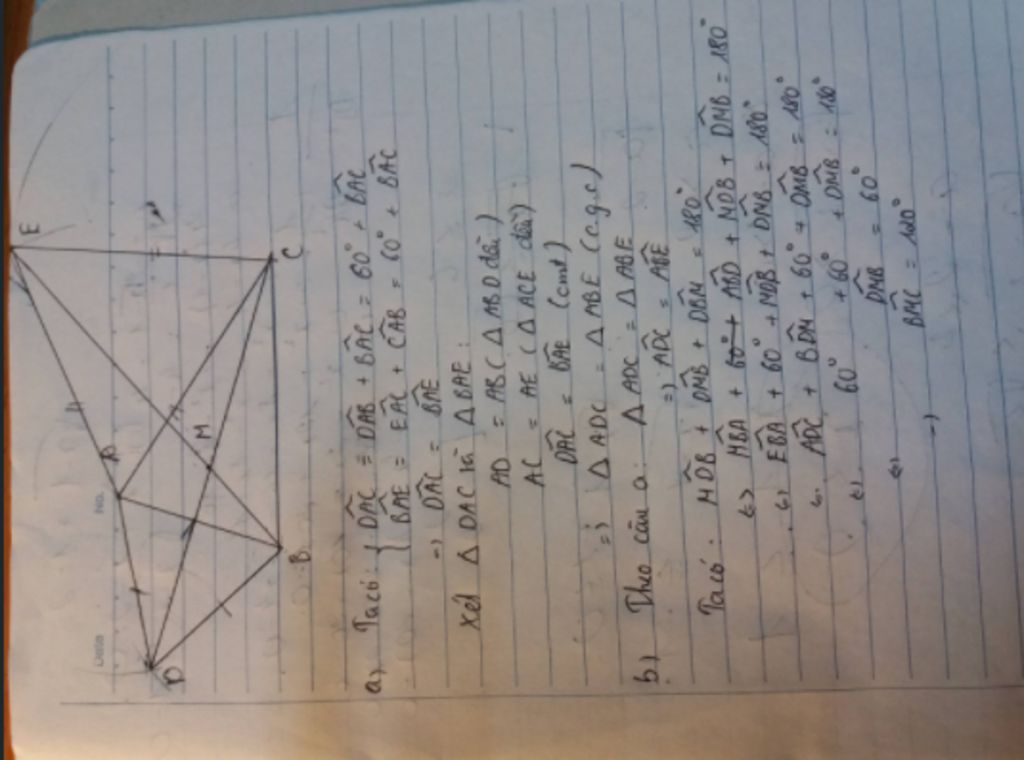 Date No.
E
A
M
D
B
C
a) Ta có: { D̂AC = D̂AB + B̂AC = 60° + B̂AC
B̂AE = ÊAC + ĈAB = 60° + B̂AC
=) D̂AC = B̂AE
Xét Δ DAC và Δ BAE:
AD = AB (Δ ABD đều)
AC = AE (Δ ACE đều)
D̂AC = B̂AE (cmt)
=) Δ ADC = Δ ABE (c.g.c)
b) Theo câu a: Δ ADC = Δ ABE
=) ÂDC = ÂBE
Ta có: M̂DB + D̂MB + D̂BM = 180°
(=) M̂BA + 60° + ÂBD + M̂DB + D̂MB = 180°
(=) ÊBA + 60° + M̂DB + D̂MB = 180°
(=) ÂDC + B̂DM + 60° + D̂MB = 180°
(=) 60° + 60° + D̂MB = 180°
(=) D̂MB = 60°
=) B̂MC = 120°